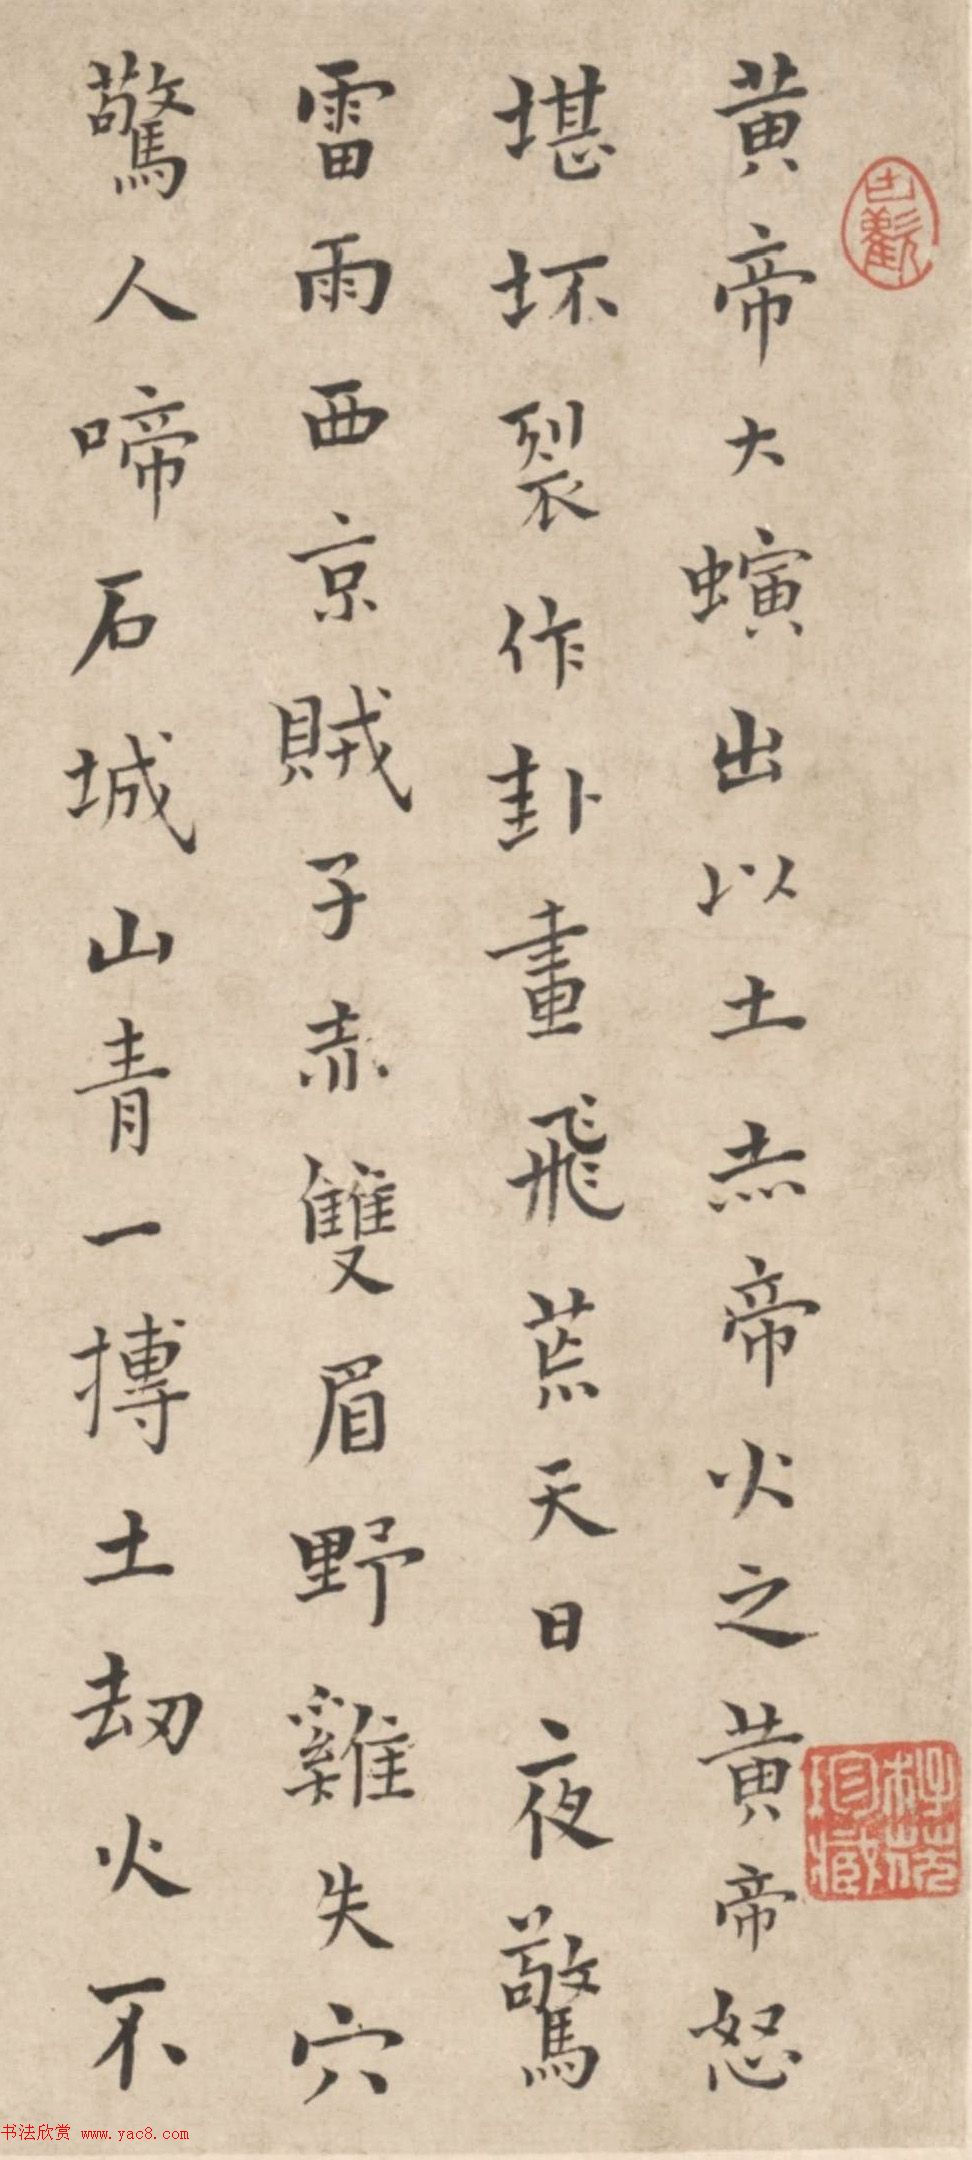 黄帝大螾出以土赤帝火之黄帝怒
堪坏裂作卦畫飛荒天日夜驚
雷雨西京賊子赤雙眉野雞失穴
驚人啼石城山青一搏土刧火不
书法欣赏 www.yac8.com